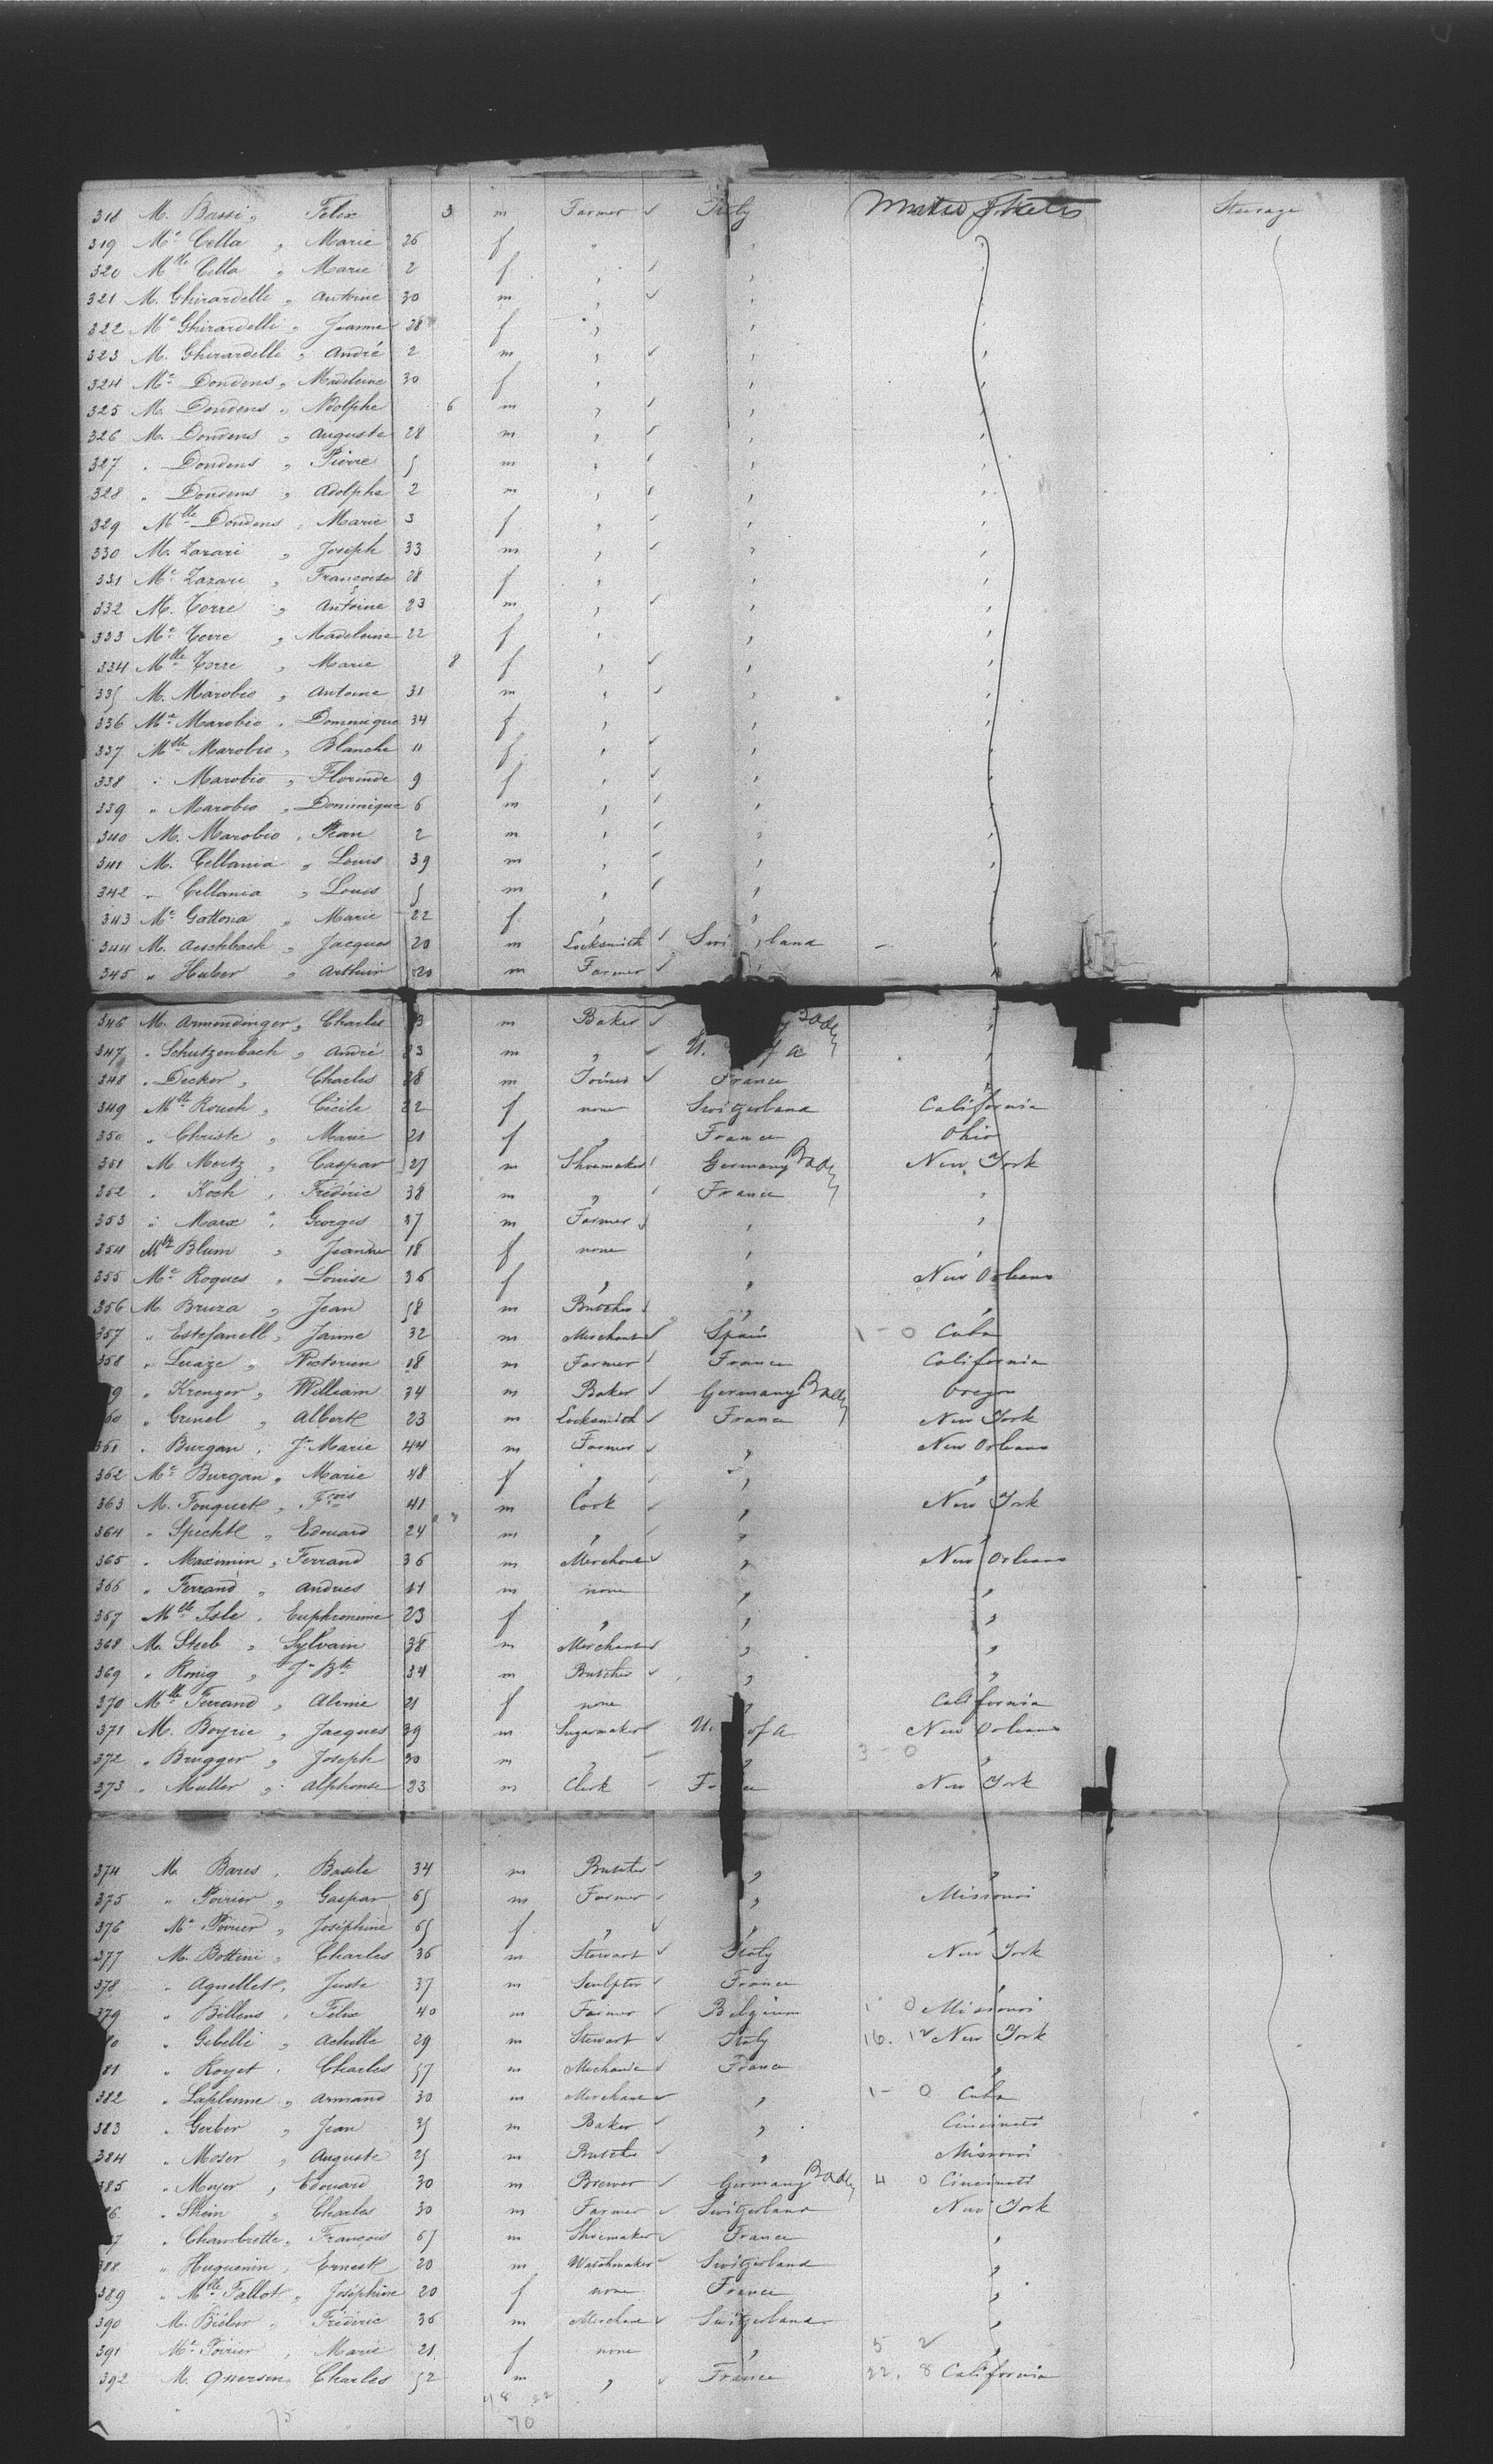 318 M. Bassi „ Felix 3 m Farmer ✓ Italy United States Steerage
319 Me Cella „ Marie 26 f „ „ „
320 Mlle Cella „ Marie 2 f „ ✓ „ „
321 M. Ghirardelli „ Antoine 30 m „ ✓ „ „
322 Me Ghirardelli „ Jeanne 28 f „ „ „
323 M. Ghirardelli „ André 2 m „ ✓ „ „
324 Me Dondens „ Madeleine 30 f „ „ „
325 M. Dondens „ Adolphe 6 m „ ✓ „ „
326 M. Dondens „ Auguste 28 m „ ✓ „ „
327 „ Dondens „ Pierre 5 m „ ✓ „ „
328 „ Dondens „ Adolphe 2 m „ ✓ „ „
329 Mlle Dondens „ Marie 3 f „ ✓ „ „
330 M. Lazari „ Joseph 33 m „ ✓ „ „
331 Me Lazari „ Francoise 28 f „ „ „
332 M. Torre „ Antoine 23 m „ ✓ „ „
333 Me Torre „ Madeleine 22 f „ „ „
334 Mlle Torre „ Marie 8 f „ ✓ „ „
335 M. Marobio „ Antoine 31 m „ ✓ „ „
336 Me Marobio „ Dominique 34 f „ „ „
337 Mlle Marobio „ Blanche 11 f „ ✓ „ „
338 „ Marobio „ Florinde 9 f „ ✓ „ „
339 „ Marobio „ Dominique 6 m „ ✓ „ „
340 M. Marobio „ Jean 2 m „ ✓ „ „
341 M. Cellania „ Louis 39 m „ ✓ „ „
342 „ Cellania „ Louis 5 m „ ✓ „ „
343 Me Gattona „ Marie 22 f „ „ „
344 M. Aeschbach „ Jacques 20 m Locksmith ✓ Swi land „
345 „ Huber „ Arthur 20 m Farmer ✓ „ „
346 M. Armendinger „ Charles 3 m Baker ✓ Baden „
347 „ Schutzenbach „ André 23 m „ ✓ U. of A „
348 „ Decker „ Charles 28 m Joiner ✓ France „
349 Mlle Rouch „ Cécile 22 f none Switzerland California
350 „ Christe „ Marie 21 f „ France Ohio
351 M Mertz „ Caspar 27 m Shoemaker ✓ Germany Baden New York
352 „ Koch „ Fréderic 38 m „ ✓ France „
353 „ Marx „ Georges 27 m Farmer ✓ „ „
354 Mlle Blum „ Jeanne 18 f none „ „
355 Me Roques „ Louise 36 f „ „ New Orleans
356 M. Bruza „ Jean 58 m Butcher ✓ „ „
357 „ Estefanell „ Jaime 32 m Merchant ✓ Spain 1 - 0 Cuba
358 „ Luaize „ Victorien 18 m Farmer ✓ France California
9 „ Krenger „ William 34 m Baker ✓ Germany Baden Oregon
60 „ Grinel „ Albert 23 m Locksmith ✓ France New York
361 „ Burgan „ Jn Marie 44 m Farmer ✓ „ New Orleans
362 Me Burgan „ Marie 48 f „ ✓ „ „
363 M. Fouquet „ Fcois 41 m Cook ✓ „ New York
364 „ Specht „ Edouard 24 m „ ✓ „ „
365 „ Maximin „ Ferrand 36 m Merchant ✓ „ New Orleans
366 „ Ferrand „ Andries 11 m none „ „
367 Mlle Isle „ Euphronime 23 f „ „ „
368 M. Steeb „ Sylvain 38 m Merchant ✓ „ „
369 „ König „ Jn Bte 34 m Butcher ✓ „ „
370 Mlle Ferrand „ Alinie 21 f none „ California
371 M. Boyrie „ Jacques 39 m Sugarmaker ✓ U. of A New Orleans
372 „ Brugger „ Joseph 30 m „ ✓ „ 3 - 0 „
373 „ Muller „ Alphonse 23 m Clerk ✓ F ce New York
374 M. Bares „ Basile 34 m Butcher ✓ „ „
375 „ Poirier „ Gaspar 65 m Farmer ✓ „ Missouri
376 Me Poirier „ Joséphine 65 f „ ✓ „ „
377 M. Bottini „ Charles 36 m Stewart ✓ Italy New York
378 „ Agnellet „ Juste 37 m Sculptor ✓ France „
379 „ Billens „ Félix 40 m Farmer ✓ Belgium 1 0 Missouri
80 „ Gebelli „ Achille 29 m Stewart ✓ Italy 16. 12 New York
81 „ Royet „ Charles 57 m Mechanic ✓ France „
382 „ Laplume „ Armand 30 m Merchant ✓ „ 1 - 0 Cuba
383 „ Gerber „ Jean 35 m Baker ✓ „ Cincinnati
384 „ Moser „ Auguste 25 m Butcher ✓ „ Missouri
385 „ Meyer „ Edouard 30 m Brewer ✓ Germany Baden 4 0 Cincinnati
86 „ Stein „ Charles 30 m Farmer ✓ Switzerland New York
87 „ Chambrette „ Francois 67 m Shoemaker ✓ France „
388 „ Huguenin „ Ernest 20 m Watchmaker ✓ Switzerland „
389 „ Mlle Fallot „ Joséphine 20 f none France „
390 M. Bieber „ Fréderic 36 m Merchant ✓ Switzerland „
391 Me Poirier „ Marie 21 f none „ 5 2 „
392 M. Guersen Charles 52 m „ ✓ France 22. 8 California
48 22
75 70